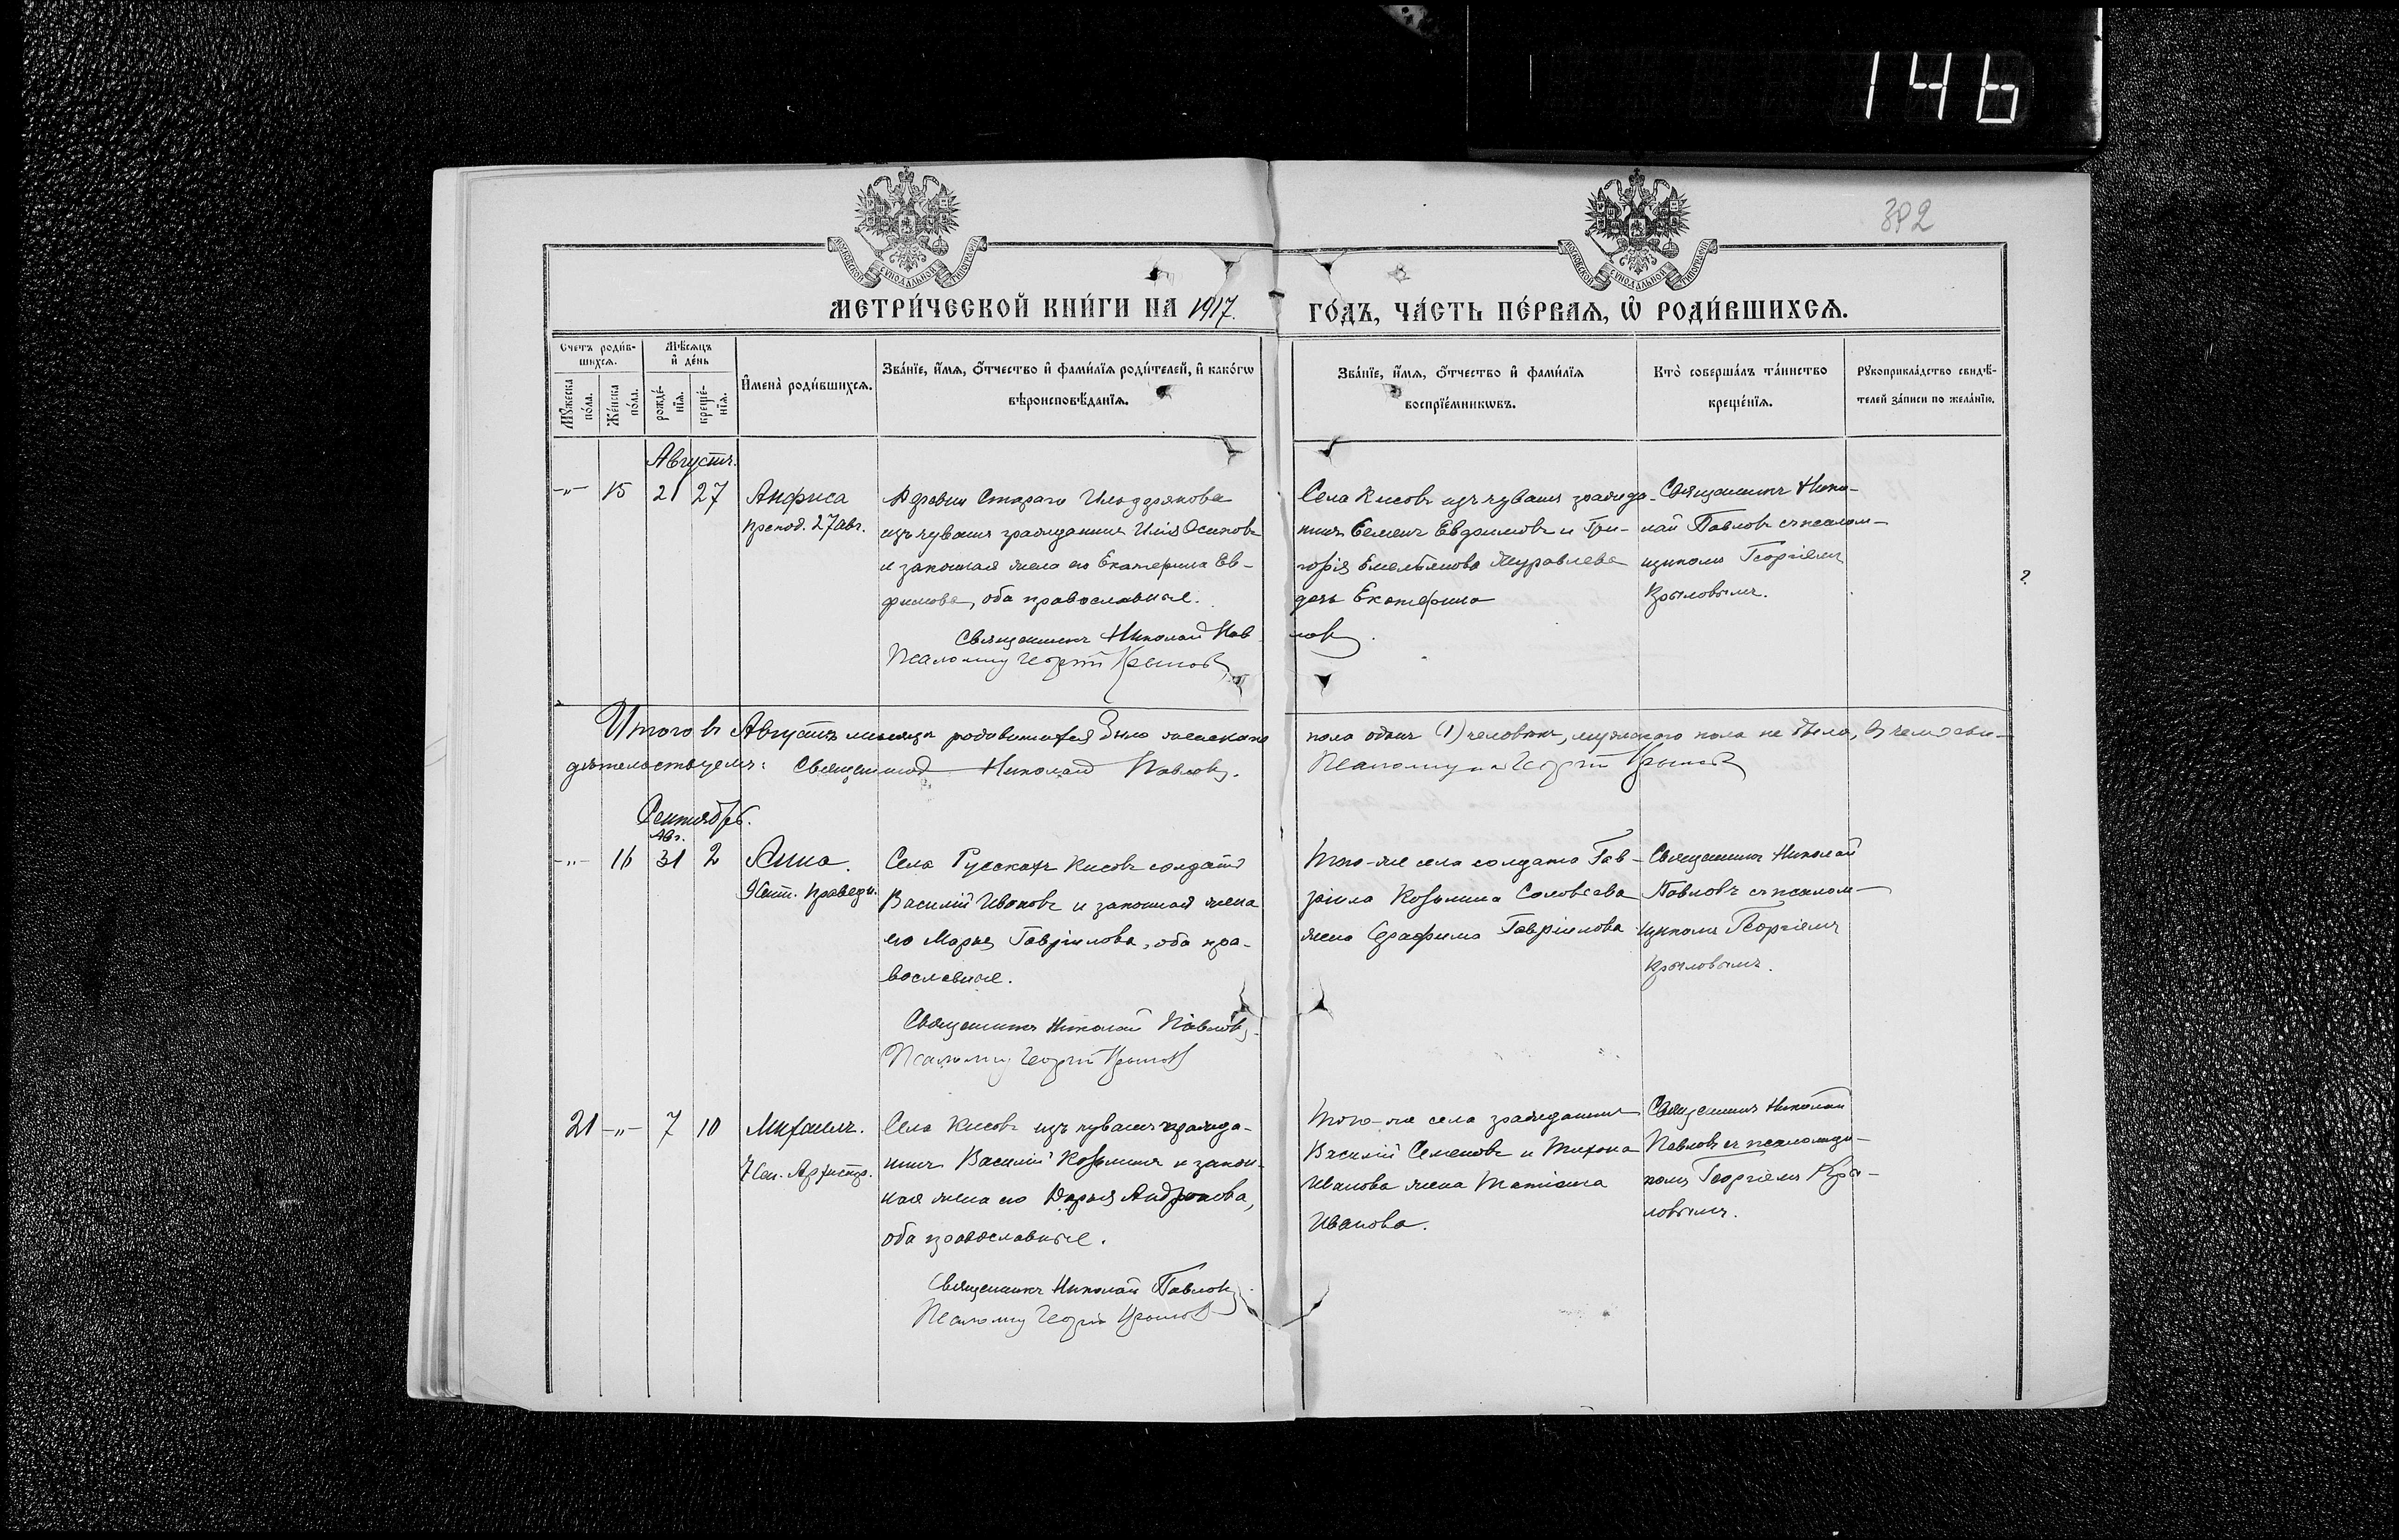 146
382
МОСКОВСКОЙ СѴНОДАЛЬНОЙ ТИПОГРАФІИ
МОСКОВСКОЙ СѴНОДАЛЬНОЙ ТИПОГРАФІИ
МЕТРИ́ЧЕСКОЙ КНИ́ГИ НА 1917.
ГО́ДЪ, ЧА́СТЬ ПЕ́РВАѦ, Ѡ҆ РОДИ́ВШИХСѦ.
Счетъ роди́в-
шихсѧ.
Мѹ́жеска по́ла.
Же́нска по́ла.
Мѣ́сѧцъ и҆ де́нь
рожде́-нїѧ.
креще́-нїѧ.
И҆мена̀ роди́вшихсѧ.
Зва́нїе, и҆́мѧ, ѻ҆́тчество и҆ фами́лїѧ роди́телей, и҆ како́гѡ
вѣроисповѣ́данїѧ.
Зва́нїе, и҆́мѧ, ѻ҆́тчество и҆ фами́лїѧ
воспрїе́мникѡвъ.
Кто̀ соверша́лъ та́инство
креще́нїѧ.
Рꙋкоприкла́дство свидѣ́-
телей за́писи по жела́нїю.
Августъ.
-"- 15 21 27 Анфиса
препод. 27 авг.
Деревни Стараго Ильдрякова
изъ чувашъ гражданинъ Илія Осиповъ
и законная жена его Екатерина Ев-
фимова, оба православные.
Священникъ Николай Пав
лов
Псаломщ Георгій Крылов
Села Кисовъ изъ чувашъ гражда-
нинъ Семенъ Евфимовъ и Гри-
горія Емельянова Журавлева
дочь Екатерина
Священникъ Нико-
лай Павловъ съ псалом-
щикомъ Георгіемъ
Крыловымъ.
?
Итого въ Августѣ мѣсяцѣ родившихся было женскаго
пола одинъ (1) человѣкъ, мужского пола не было, въ чемъ сви-
дѣтельствуемъ: Священник Николай Павловъ.
Псаломщик Георгій Крылов
Сентябрь.
Авг.
-"- 16 31 2 Анна.
9 Сент. Праведн.
Села Русскихъ Кисовъ солдатъ
Василій Ивановъ и законная жена
его Марья Гавріилова, оба пра-
вославные.
Священникъ Николай Павловъ
Псаломщ Георгій Крылов
Того-же села солдата Гав-
ріила Козьмина Соловьева
жена Серафима Гавріилова
Священникъ Николай
Павловъ съ псалом-
щикомъ Георгіемъ
Крыловымъ.
21 -"- 7 10 Михаилъ.
Села Кисовъ изъ чувашъ гражда-
нинъ Василій Козьминъ и закон-
ная жена его Дарья Андронова,
оба православные.
Священникъ Николай Павлов
Псаломщ Георгій Крылов
Того-же села гражданинъ
Василій Семеновъ и Тихона
Иванова жена Татіана
Иванова.
Священникъ Николай
Павловъ съ псаломщи-
комъ Георгіемъ Кры-
ловымъ.